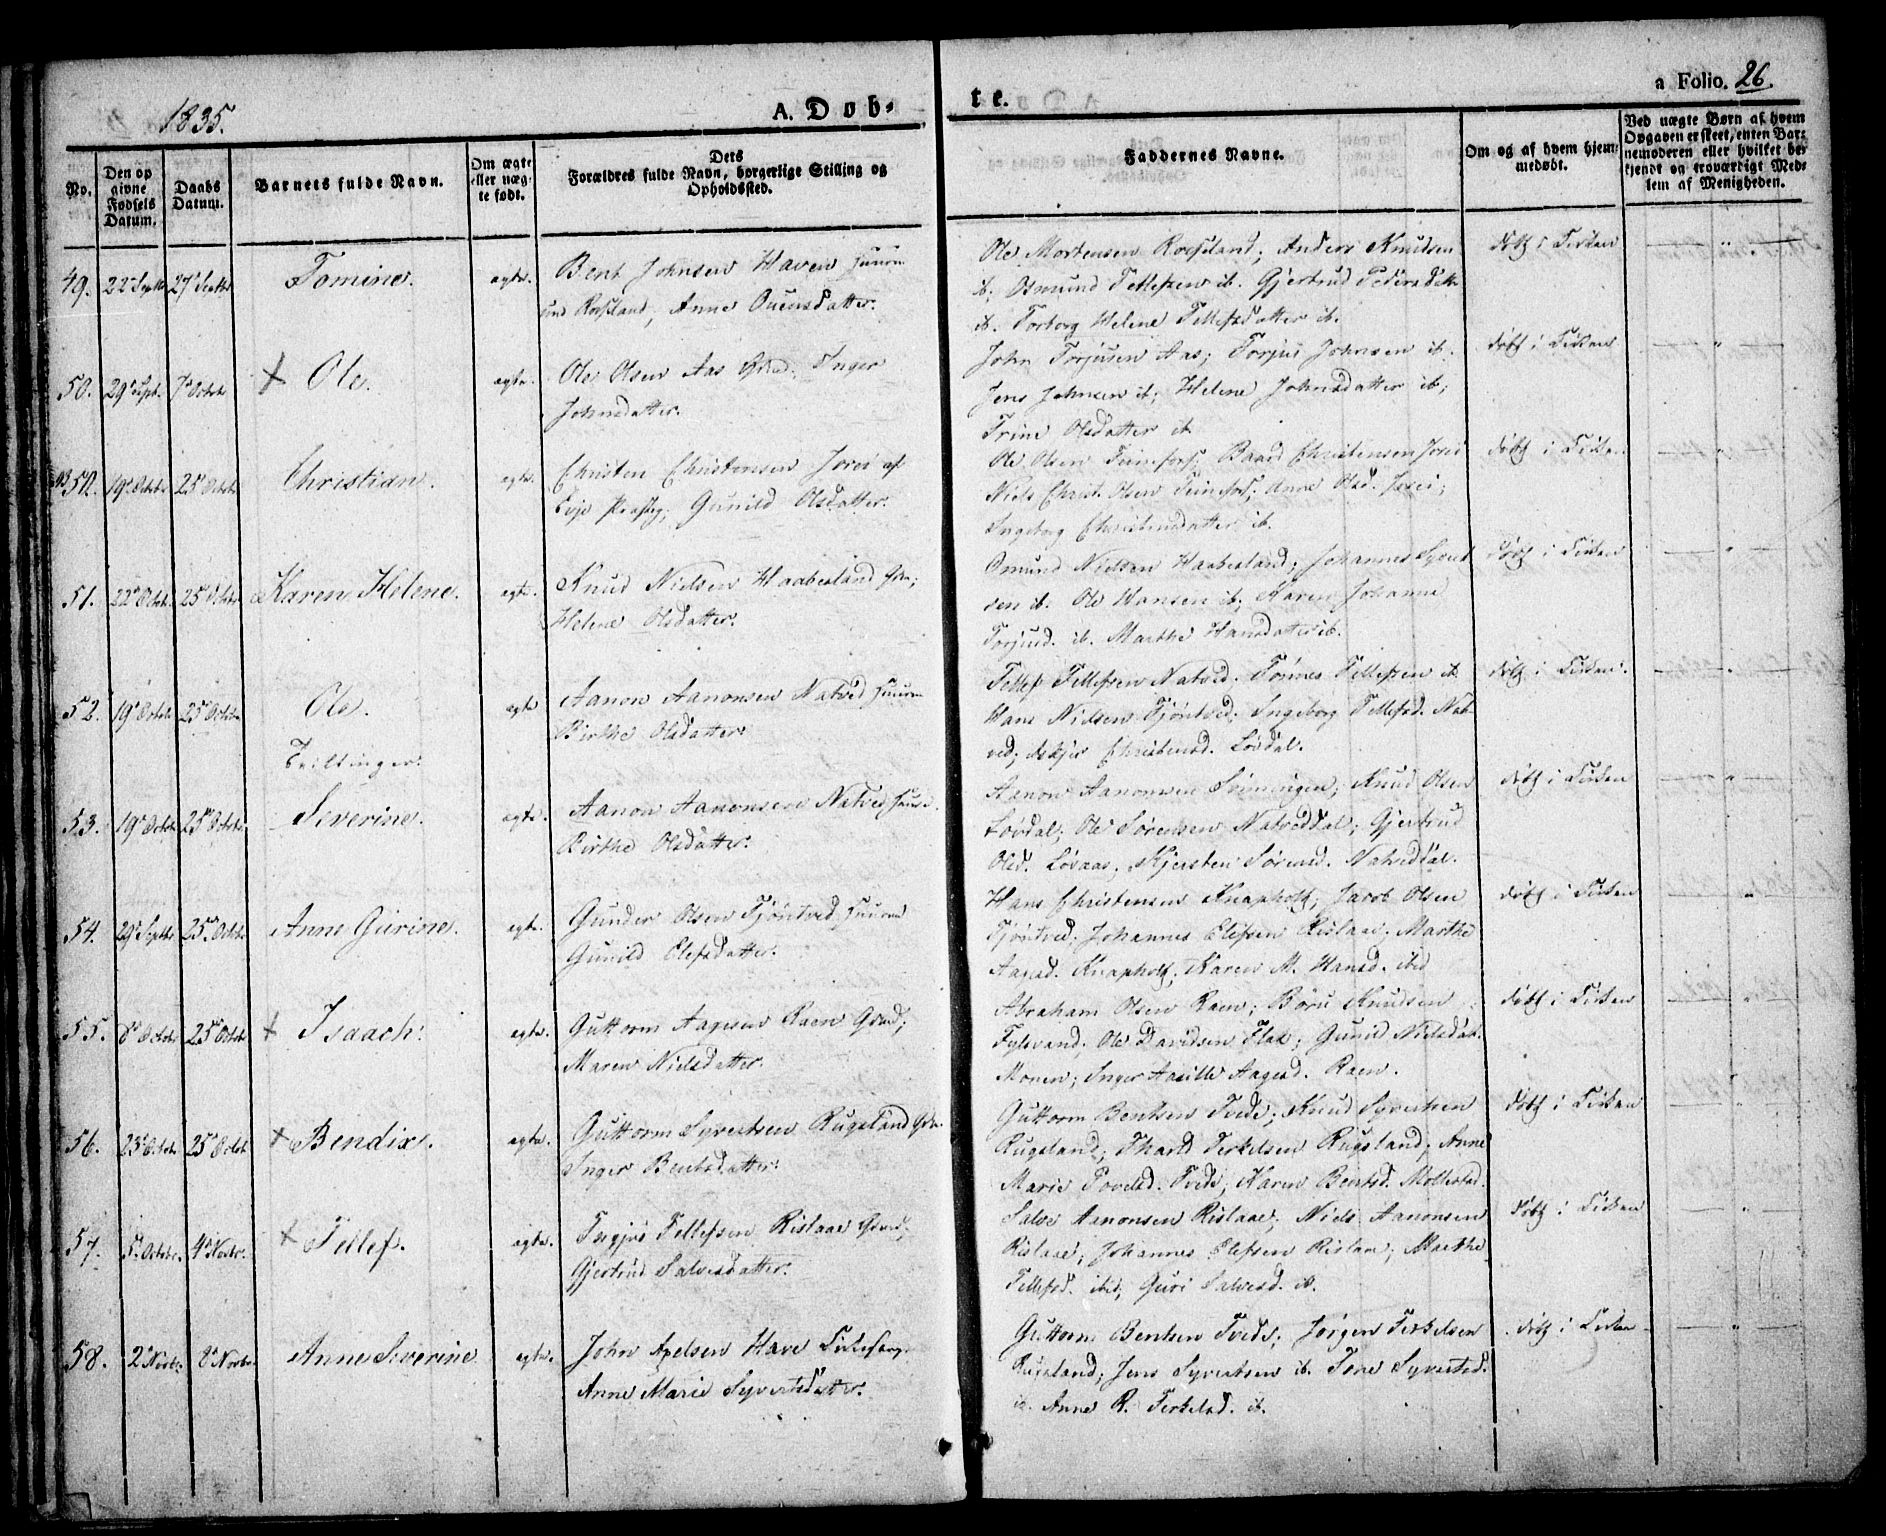 1835.
A. Døb-
te.
a Folio. 26
No.
Den op
givne
Fødsels
Datum.
Daabs
Datum.
Barnets fulde Navn.
Om ægte
eller uæg-
te født.
Dets
Forældres fulde Navn, borgerlige Stilling og
Opholdssted.
Faddernes Navne.
Om og af hvem hjem-
medøbt.
Ved uægte Børn af hvem
Opgaven er skeet, enten Bar-
nemoderen eller hvilket be-
kjendt og troværdigt Med-
lem af Menigheden.
49. 22 Septbr 27 Septbr Tomine. ægte.
Bent Johnsen Haven
Rossland, Anne Ouensdatter.
Ole Mortensen Rossland; Anders Knudsen
ib; Osmund Tellefsen ib. Gjertrud Pedersdatter
ib. Torborg Helene Tellefsdatter ib.
døbt i Kirken
50. 29 Sept. 7 Octobr × Ole. ægte.
Ole Olsen Aas Inger
Johnsdatter.
John Torjusen Aas; Torjus Johnsen ib.
Jens Johnsen ib; Helene Johnsdatter ib;
Trine Olsdatter ib
døbt i Kirken
50. 19 Octobr 25 Octobr Christian. ægte.
Christen Christensen af
Evje Præstg; Gunild Olsdatter.
Ole Olsen Baard Christensen
Niels Christ. Olsen Anne Olsd.
Ingeborg Christensdatter ib.
døbt i Kirken
51. 22 Octobr. 25 Octobr Karen Helene. ægte.
Knud Nielsen Haabesland
Helene Olsdatter.
Osmund Nielsen Haabesland; Johannes
sen ib. Ole Hansen ib; Karen Johanne
Torjusd. ib. Marthe Hansdatter ib.
døbt i Kirken
52. 19 Octobr 25 Octobr Ole. ægte
Tvillinger:
Aanon Aanonsen Natved
Birthe Olsdatter.
Tellef Tellefsen Natved. Tønnes Tellefsen ib.
Hans Nielsen Tjøntved; Ingeborg Tellefsd. Nat-
ved; Christensd. Løvdal.
døbt i Kirken
53. 19 Octobr 25 Octobr Severine. ægte.
Aanon Aanonsen Natved
Birthe Olsdatter.
Aanon Aanonsen Knud Olsen
Løvdal; Ole Sørensen Natveddal; Gjertrud
Olsd. Løvaas; Kjersten Sørensd. Natveddal.
døbt i Kirken
54. 29 Septbr 25 Octobr Anne Gurine. ægte.
Gunder Olsen Tjøntved
Gunild Elefsdatter.
Hans Christensen Knapholt; Jacob Olsen
Tjøntved. Johannes Elefsen Rislaae; Marthe
Aagesd. Knapholt; Karen M. Hansd. ibid
døbt i Kirken
55. 8 Octobr 25 Octobr × Isaach. ægte.
Guttorm Aagesen Raen
Maren Nielsdatter.
Abraham Olsen Raen; Børu Knudsen
Ole Davidsen Flak; Gunild Nielsdat.
Monen; Inger Aasille Aagesd. Raen.
døbt i Kirken
56. 23 Octobr. 25 Octobr × Bendix. ægte.
Guttorm Syvertsen Rugsland
Inger Bentsdatter.
Guttorm Bentsen Tvede; Knud Syvertsen
Rugsland; Tharld Terkelsen Rugsland; Anne
Marie Povelsd. Tvede; Karen Bentsd. Mollestad.
døbt i Kirken
57. 5 Octobr. 4 Novbr. × Tellef. ægte.
Tellefsen Rislaae
Gjertrud Salvesdatter.
Salve Aanonsen Rislaae; Niels Aanonsen
Rislaae; Johannes Elefsen Rislaae; Marthe
Tellefsd. ibid; Guri Salvesd. ib.
døbt i Kirken
58. 2 Novbr. 8 Novbr Anne Severine ægte.
John Axelsen Have
Anne Marie Syvertsdatter.
Guttorm Bentsen Tvede; Jørgen Terkelsen
Rugsland; Jens Syvertsen ib. Tone Syvertsd.
ib. Anne R. Terkelsd. ib.
døbt i Kirken